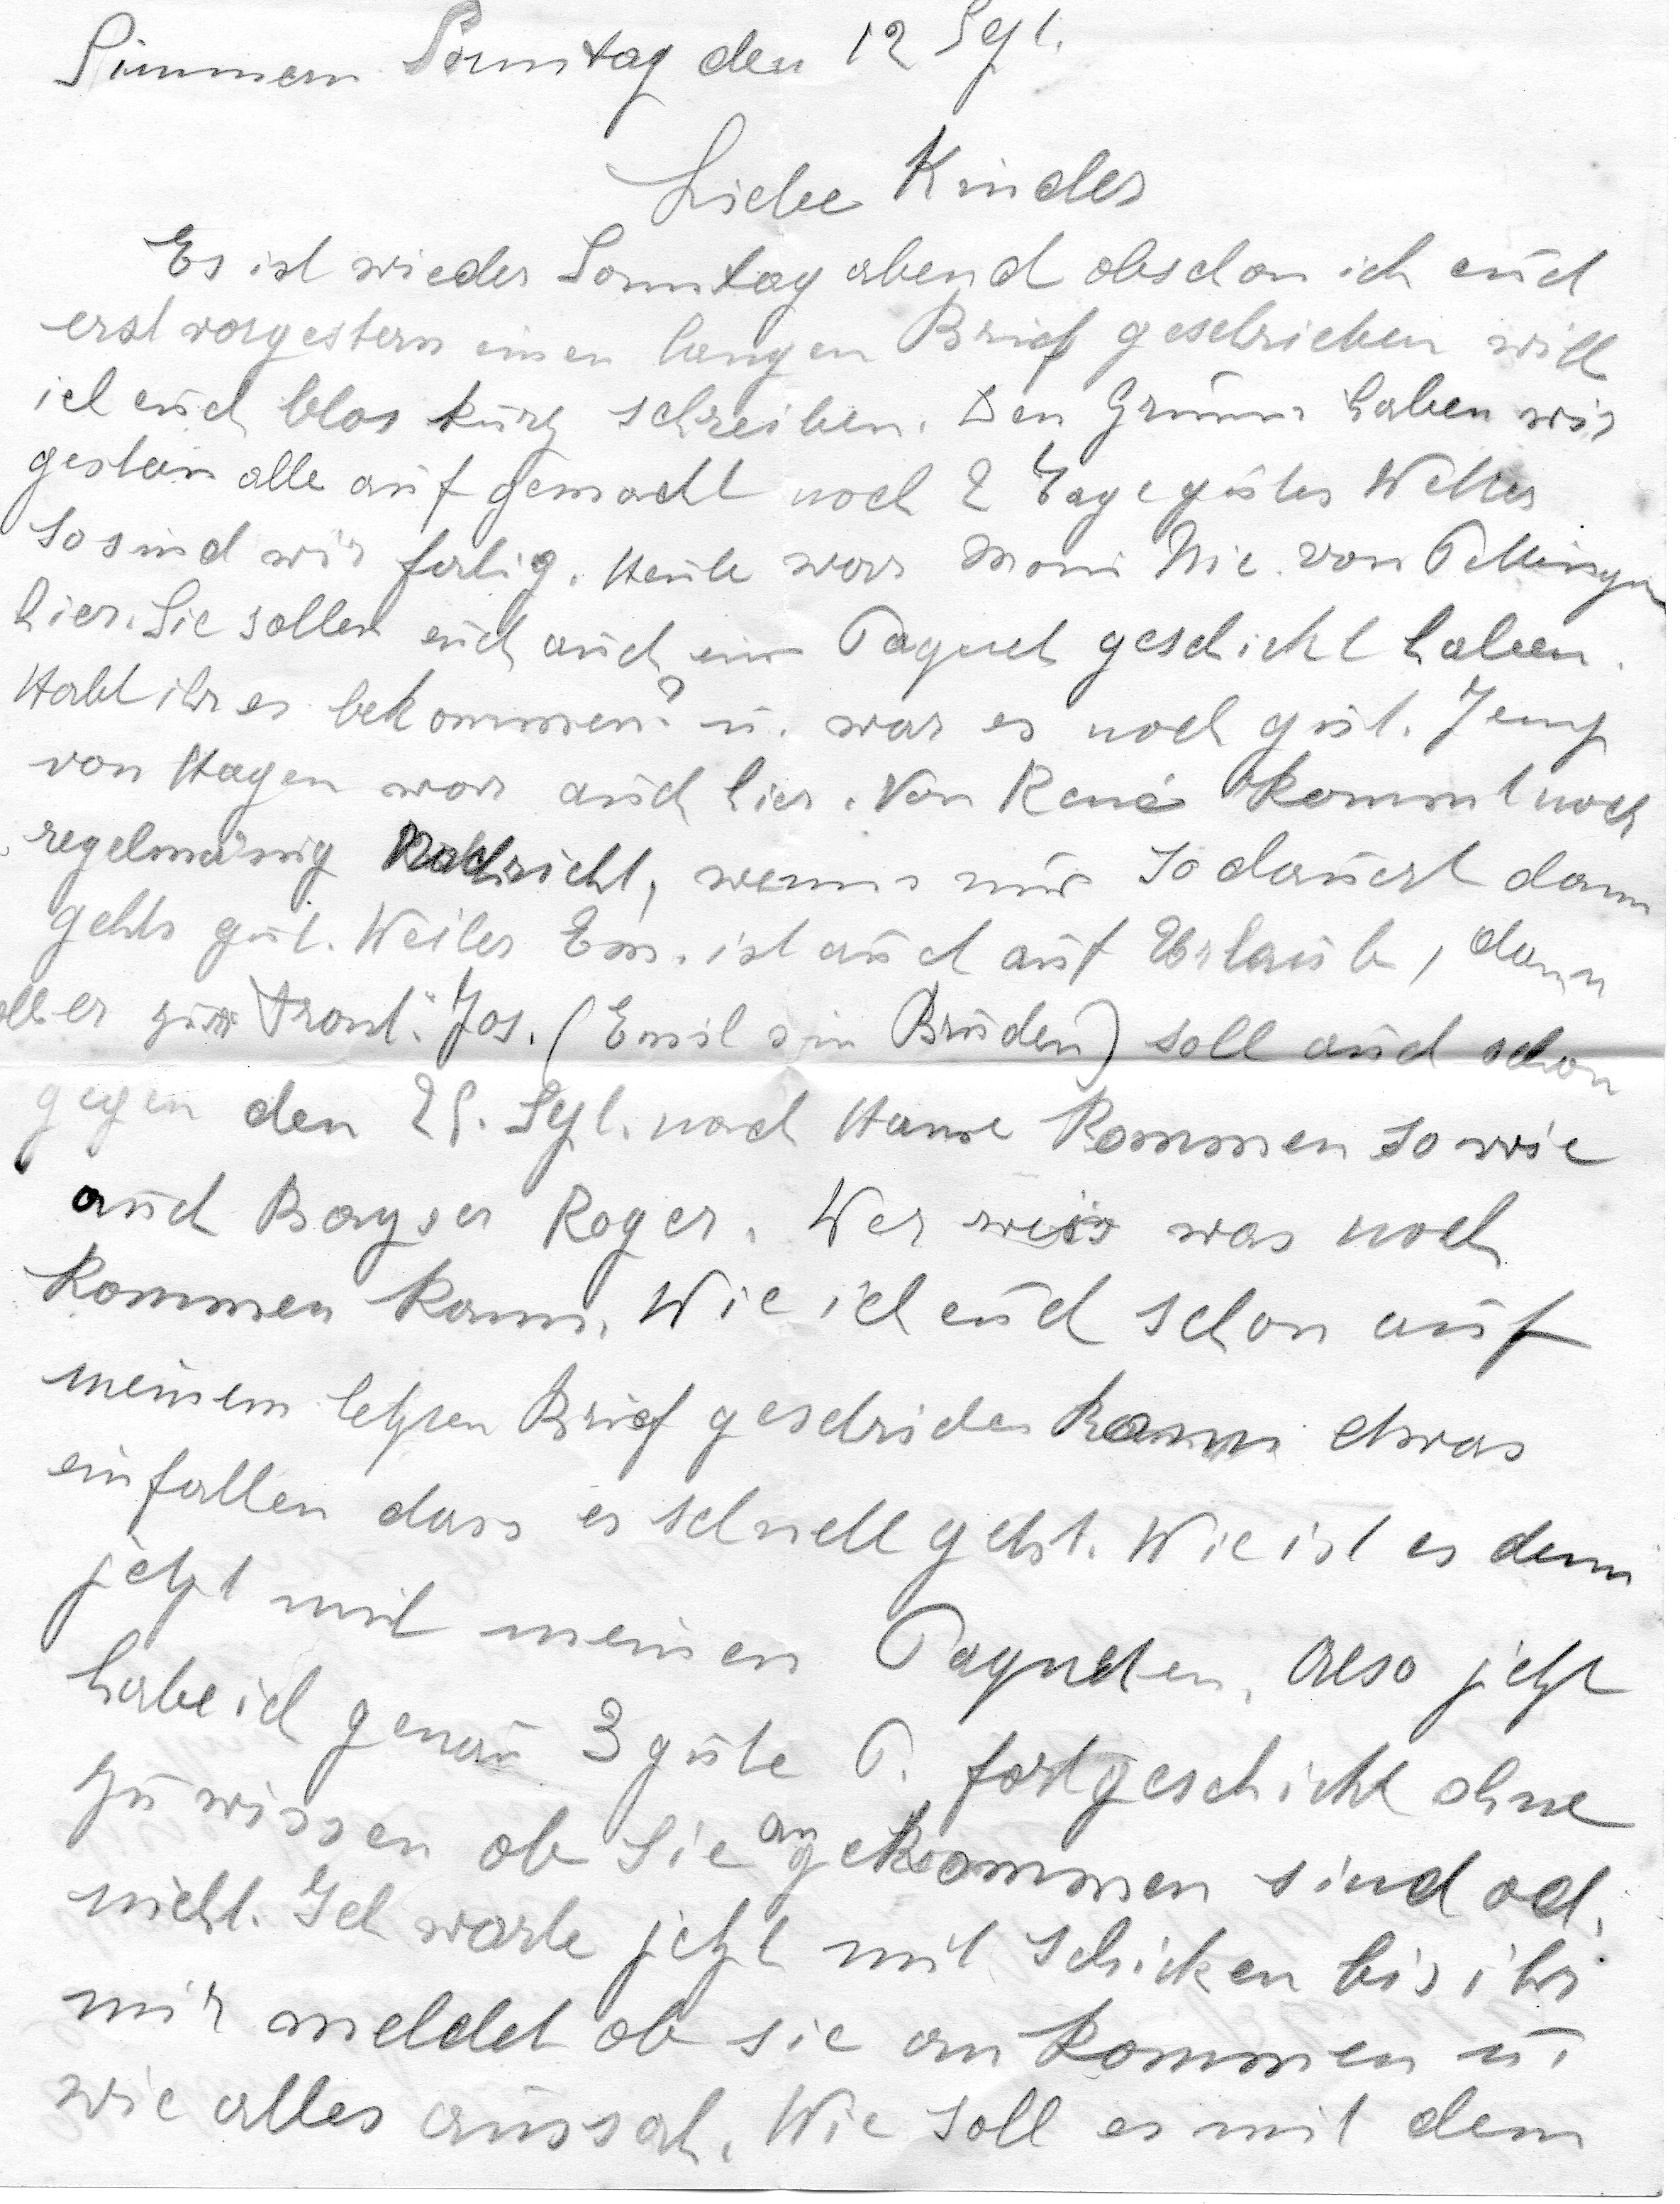 Simmern Sonntag den 12 Sept.
Liebe Kinder
Es ist wieder Sonntag abend obschon ich euch
erst vorgestern einen langen Brief geschrieben will
ich euch blos kurz schreiben. Den Grumm haben wir
gestern alle auf gemacht noch 2 Tage gutes Wetter
so sind wir fertig. Heute war Moni Nic. von Pellingen
hier. Sie sollen euch auch ein Paquet geschickt haben.
Habt ihr es bekommen? u. war es noch gut. Jemp
von Hagen war auch hier. Von René kommt noch
regelmässig Nachricht, wenns nur so dauert dann
gehts gut. Weiler Em. ist auch auf Urlaub, dann
soll er zur Front. Jos. (Emil sin Bruder) soll auch schon
gegen den 25. Sept. nach Hause kommen sowie
auch Bayser Roger. Wer weis was noch
kommen kann. Wie ich euch schon auf
meinem letzten Brief geschrieben kann etwas
einfallen dass es schnell geht. Wie ist es denn
jetzt mit meinen Paqueten. Also jetzt
habe ich genau 3 gute P. fortgeschickt ohne
zu wissen ob sie angekommen sind od.
nicht. Ich warte jetzt mit schicken bis ihr
mir meldet ob sie an kommen u.
wie alles aussah. Wie soll es mit dem